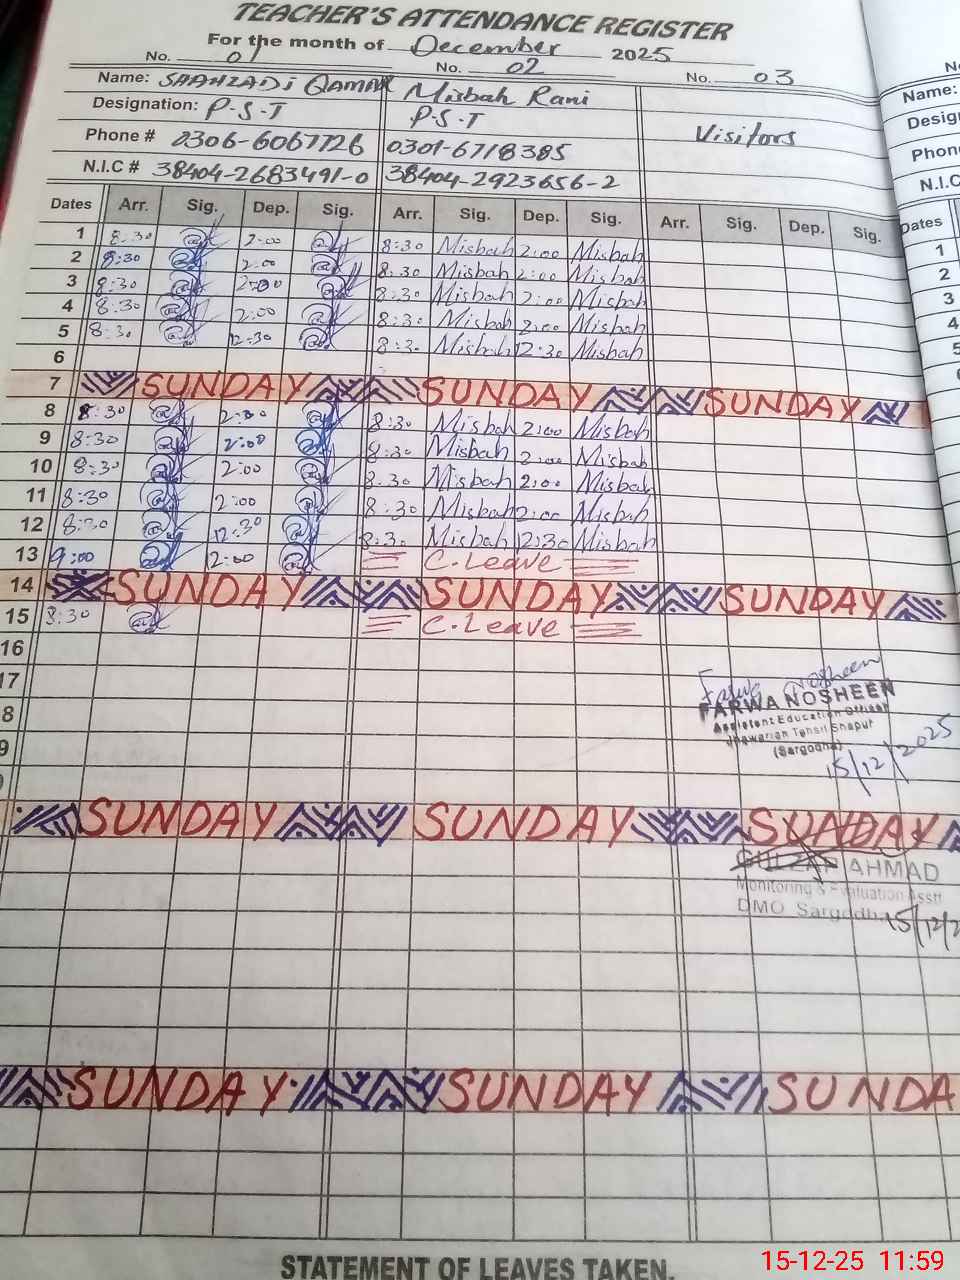 TEACHER'S ATTENDANCE REGISTER
For the month of December 2025
No. 01 No. 02 No. 03
Name: SHAHZADI QAMAR Misbah Rani
Designation: P.S.T P.S.T Visitors
Phone # 0306-6067726 0301-6718385
N.I.C # 38404-2683491-0 38404-2923656-2
Dates Arr. Sig. Dep. Sig. Arr. Sig. Dep. Sig. Arr. Sig. Dep. Sig.
1 8:30 2:00 8:30 Misbah 2:00 Misbah
2 8:30 2:00 8:30 Misbah 2:00 Misbah
3 8:30 2:00 8:30 Misbah 2:00 Misbah
4 8:30 2:00 8:30 Misbah 2:00 Misbah
5 8:30 12:30 8:30 Misbah 12:30 Misbah
6
7 SUNDAY SUNDAY SUNDAY
8 8:30 2:00 8:30 Misbah 2:00 Misbah
9 8:30 2:00 8:30 Misbah 2:00 Misbah
10 8:30 2:00 8:30 Misbah 2:00 Misbah
11 8:30 2:00 8:30 Misbah 2:00 Misbah
12 8:30 12:30 8:30 Misbah 12:30 Misbah
13 9:00 2:00 C.Leave
14 SUNDAY SUNDAY SUNDAY
15 8:30 C.Leave
16
17
8
9
Farwa Nosheen
FARWA NOSHEEN
Assistant Education Officer
Jhawarian Tehsil Shapur
(Sargodha)
15/12/2025
SUNDAY SUNDAY SUNDAY
GULZAR AHMAD
Monitoring & Evaluation Asstt
DMO Sargodha
15/12/2
SUNDAY SUNDAY SUNDA
STATEMENT OF LEAVES TAKEN.
N
Name:
Design
Phon
N.I.C
Dates
1
2
3
4
5
15-12-25 11:59